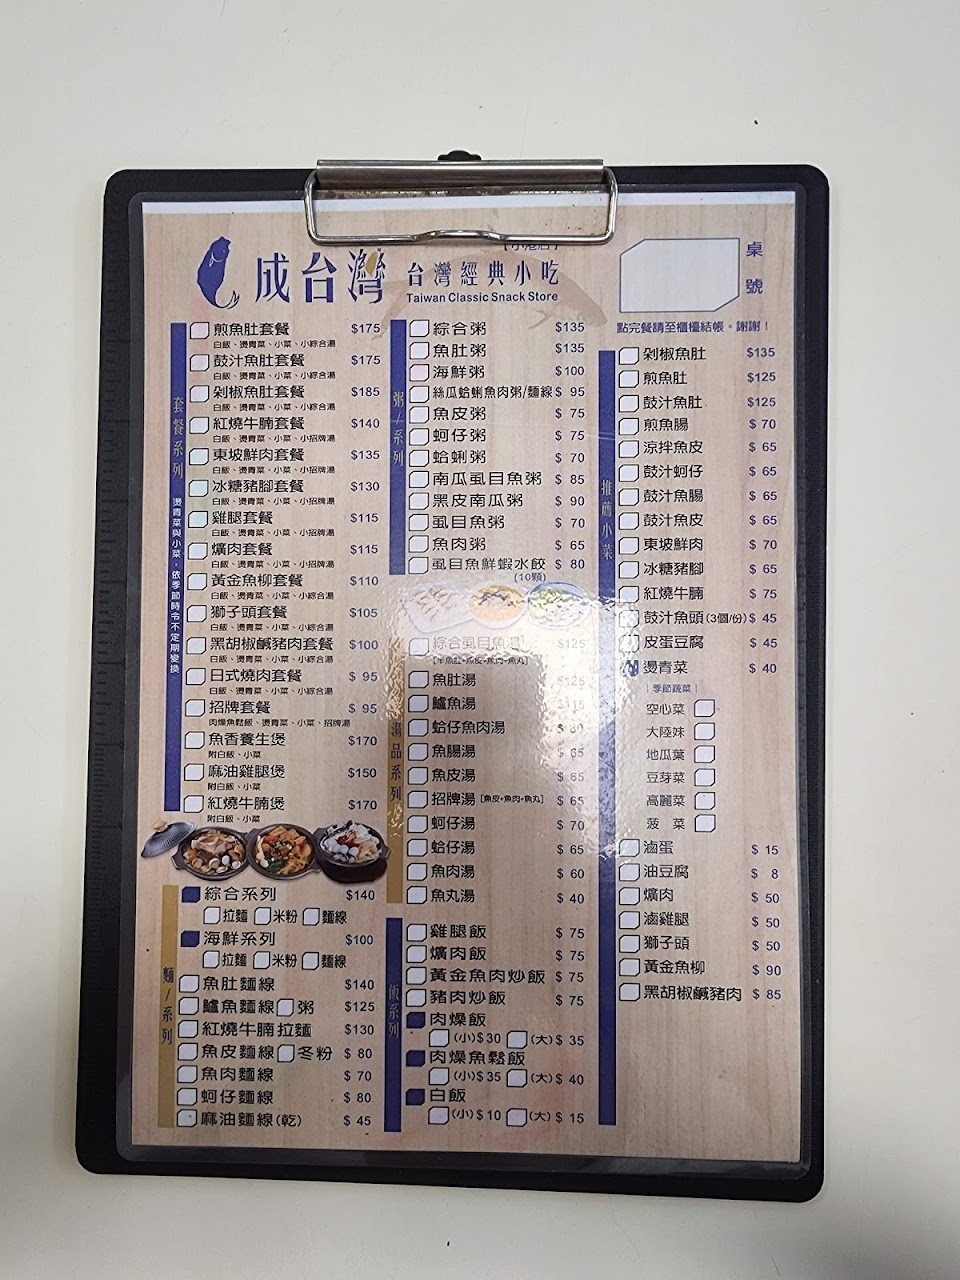 成台灣
台灣經典小吃
Taiwan Classic Snack Store
桌號
點完餐請至櫃檯結帳。謝謝！
套餐系列
燙青菜與小菜，依季節時令不定期變換
煎魚肚套餐 $175
白飯、燙青菜、小菜、小綜合湯
鼓汁魚肚套餐 $175
白飯、燙青菜、小菜、小綜合湯
剁椒魚肚套餐 $185
白飯、燙青菜、小菜、小綜合湯
紅燒牛腩套餐 $140
白飯、燙青菜、小菜、小招牌湯
東坡鮮肉套餐 $135
白飯、燙青菜、小菜、小招牌湯
冰糖豬腳套餐 $130
白飯、燙青菜、小菜、小招牌湯
雞腿套餐 $115
白飯、燙青菜、小菜、小招牌湯
爌肉套餐 $115
白飯、燙青菜、小菜、小招牌湯
黃金魚柳套餐 $110
白飯、燙青菜、小菜、小綜合湯
獅子頭套餐 $105
白飯、燙青菜、小菜、小綜合湯
黑胡椒鹹豬肉套餐 $100
白飯、燙青菜、小菜、小綜合湯
日式燒肉套餐 $ 95
白飯、燙青菜、小菜、小綜合湯
招牌套餐 $ 95
肉燥魚鬆飯、燙青菜、小菜、招牌湯
魚香養生煲 $170
附白飯、小菜
麻油雞腿煲 $150
附白飯、小菜
紅燒牛腩煲 $170
附白飯、小菜
麵/系列
綜合系列 $140
拉麵 米粉 麵線
海鮮系列 $100
拉麵 米粉 麵線
魚肚麵線 $140
鱸魚麵線 粥 $125
紅燒牛腩拉麵 $130
魚皮麵線 冬粉 $ 80
魚肉麵線 $ 70
蚵仔麵線 $ 80
麻油麵線(乾) $ 45
粥/系列
綜合粥 $135
魚肚粥 $135
海鮮粥 $100
絲瓜蛤蜊魚肉粥/麵線 $ 95
魚皮粥 $ 75
蚵仔粥 $ 75
蛤蜊粥 $ 70
南瓜虱目魚粥 $ 85
黑皮南瓜粥 $ 90
虱目魚粥 $ 70
魚肉粥 $ 65
虱目魚鮮蝦水餃 $ 80
(10顆)
湯品系列
綜合虱目魚湯 $125
魚肚湯 $125
鱸魚湯 $115
蛤仔魚肉湯
魚腸湯 $ 65
魚皮湯 $ 65
招牌湯 [魚皮+魚肉+魚丸] $ 65
蚵仔湯 $ 70
蛤仔湯 $ 65
魚肉湯 $ 60
魚丸湯 $ 40
飯系列
雞腿飯 $ 75
爌肉飯 $ 75
黃金魚肉炒飯 $ 75
豬肉炒飯 $ 75
肉燥飯
(小)$30 (大)$ 35
肉燥魚鬆飯
(小)$35 (大)$ 40
白飯
(小)$10 (大)$ 15
推薦小菜
剁椒魚肚 $135
煎魚肚 $125
鼓汁魚肚 $125
煎魚腸 $ 70
涼拌魚皮 $ 65
鼓汁蚵仔 $ 65
鼓汁魚腸 $ 65
鼓汁魚皮 $ 65
東坡鮮肉 $ 70
冰糖豬腳 $ 65
紅燒牛腩 $ 75
鼓汁魚頭(3個/份) $ 45
皮蛋豆腐 $ 45
燙青菜 $ 40
|季節蔬菜|
空心菜
大陸妹
地瓜葉
豆芽菜
高麗菜
菠 菜
滷蛋 $ 15
油豆腐 $ 8
爌肉 $ 50
滷雞腿 $ 50
獅子頭 $ 50
黃金魚柳 $ 90
黑胡椒鹹豬肉 $ 85